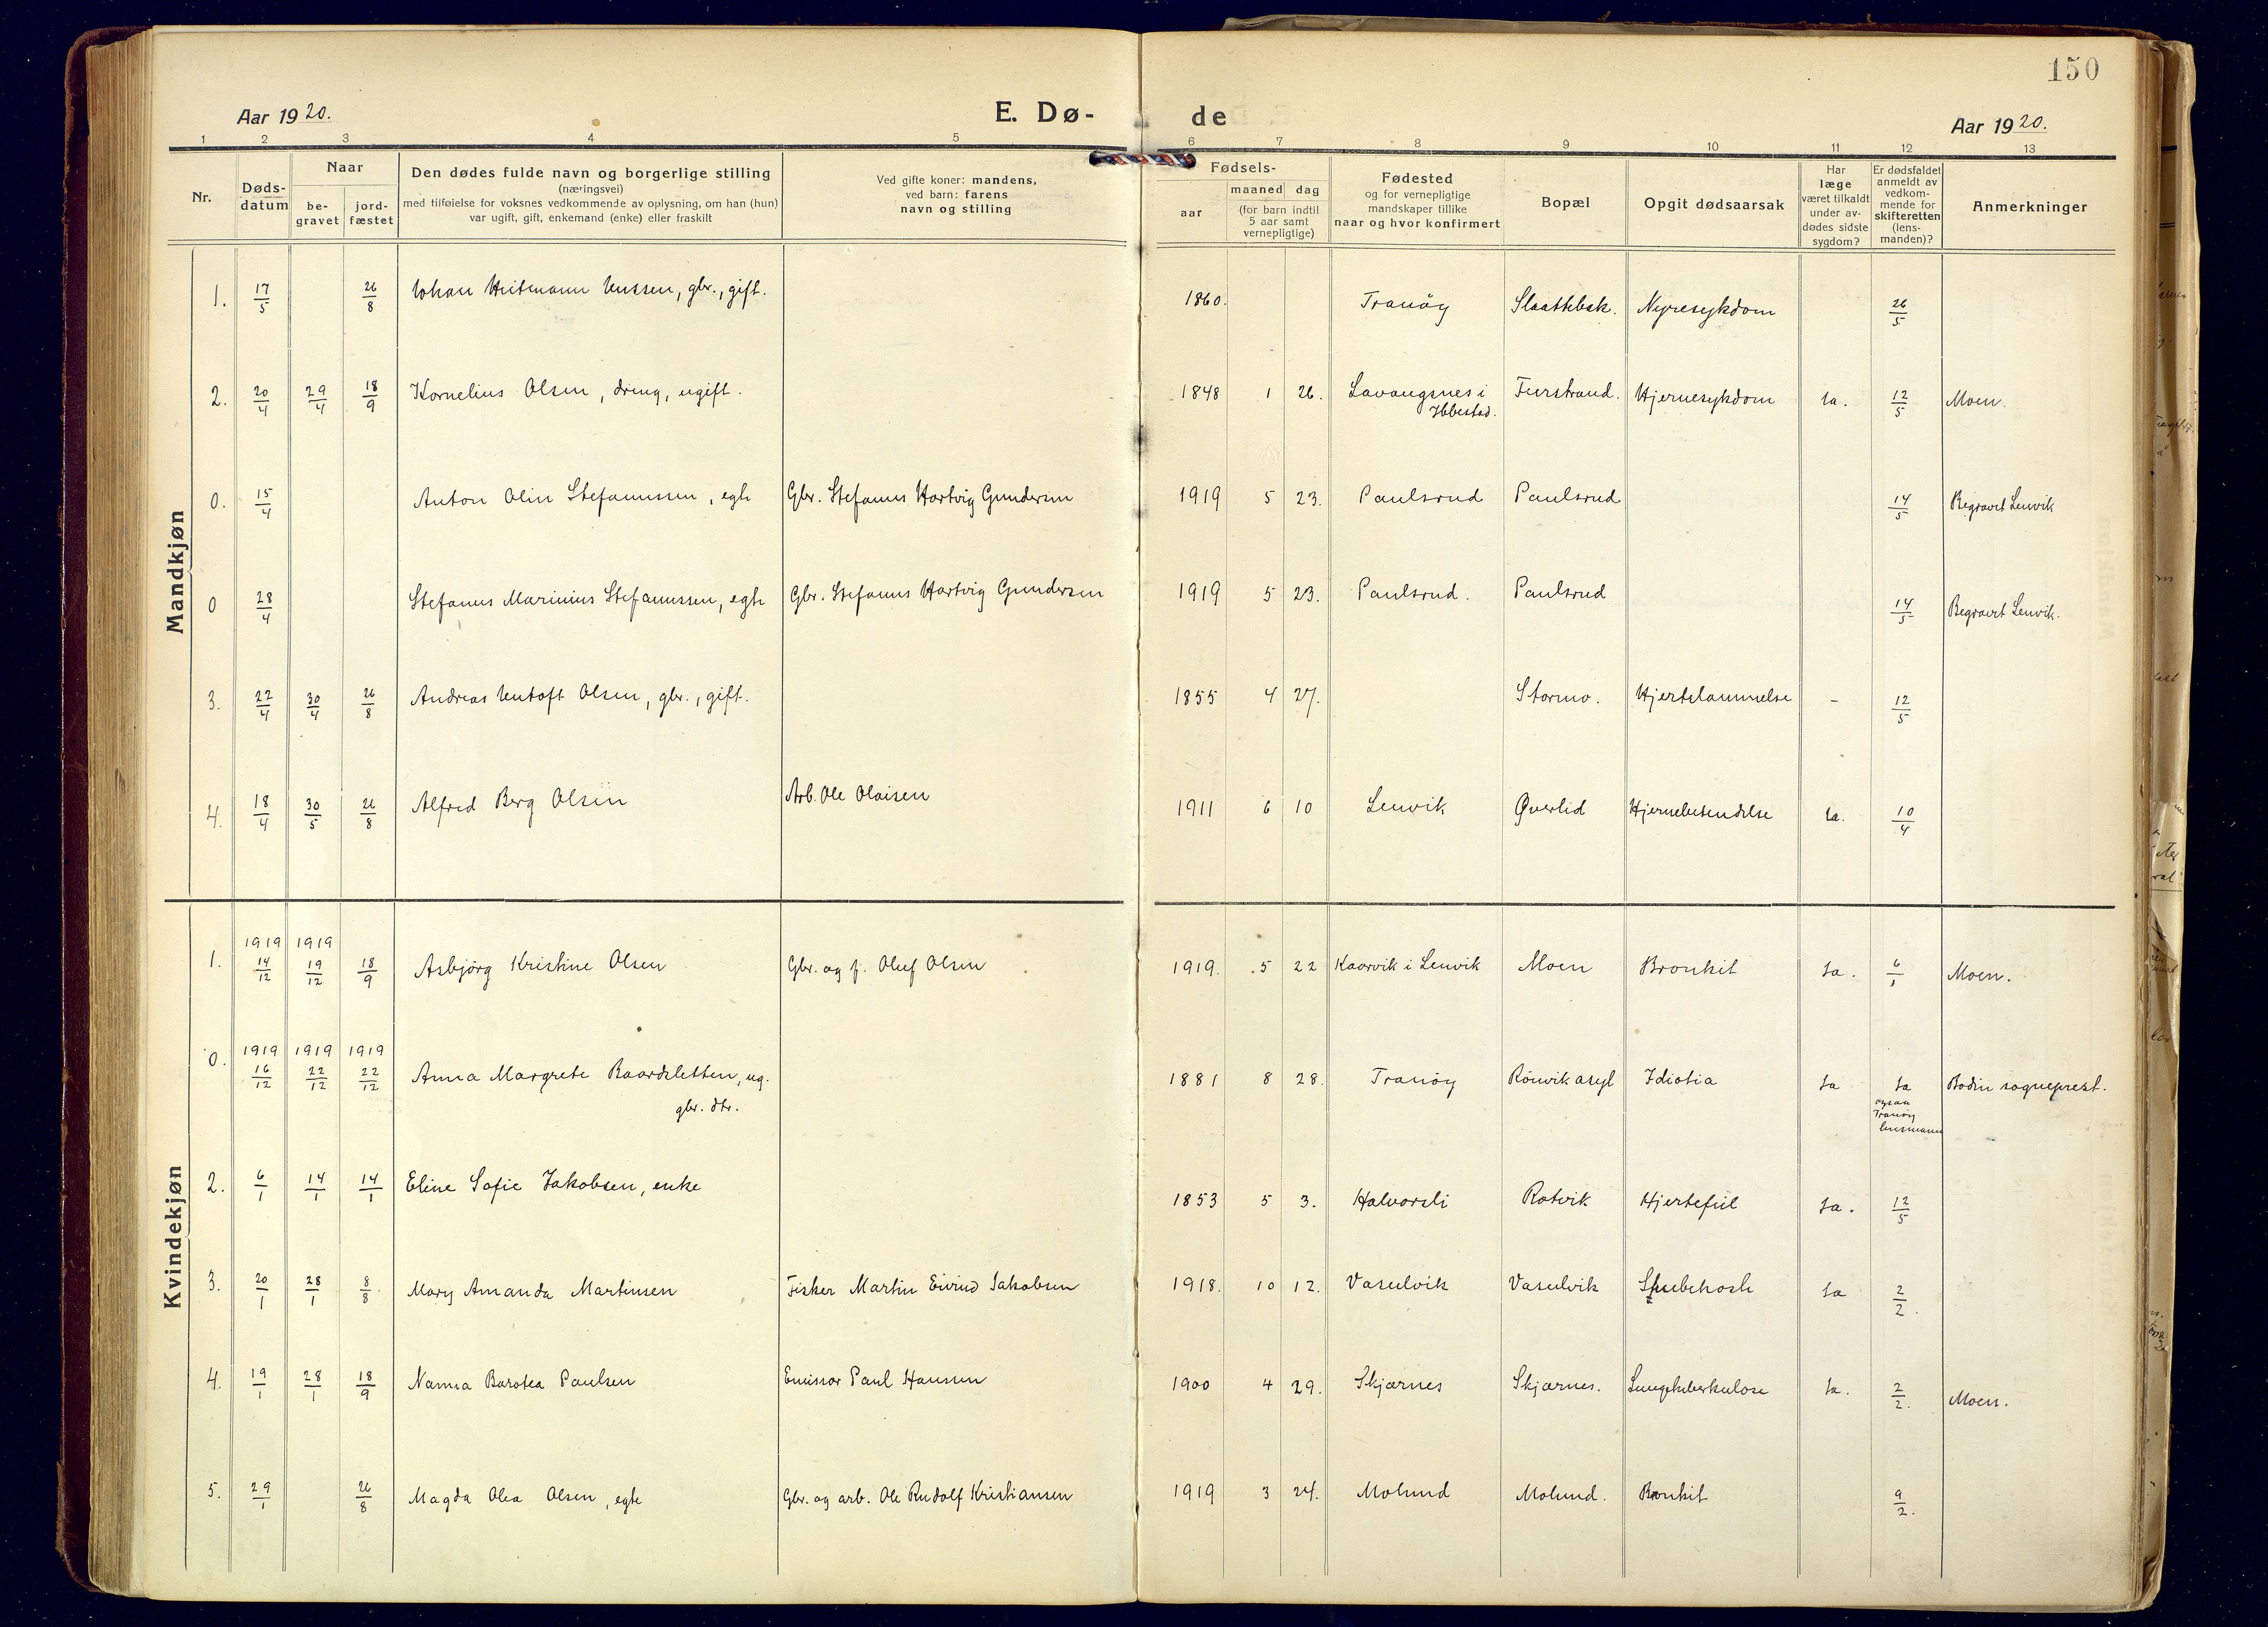 150
Aar 1920. E. Dø- de Aar 1920.
1 2 3 4 5 6 7 8 9 10 11 12 13
Nr.
Døds-
datum
Naar
be-
gravet
jord-
fæstet
Den dødes fulde navn og borgerlige stilling
(næringsvei)
med tilføielse for voksnes vedkommende av oplysning, om han (hun)
var ugift, gift, enkemand (enke) eller fraskilt
Ved gifte koner: mandens,
ved barn: farens
navn og stilling
Fødsels-
aar
maaned dag
(for barn indtil
5 aar samt
vernepligtige)
Fødested
og for vernepligtige
mandskaper tillike
naar og hvor konfirmert
Bopæl
Opgit dødsaarsak
Har
læge
været tilkaldt
under av-
dødes sidste
sygdom?
Er dødsfaldet
anmeldt av
vedkom-
mende for
skifteretten
(lens-
manden)?
Anmerkninger
Mandkjøn
1. 17/5 26/8 Johan Heitmann Jenssen, gbr., gift. 1860. Tranöy Slaattebak. Nyresykdom 26/5
2. 20/4 29/4 18/9 Kornelius Olsen, dreng, ugift. 1848 1 26. Lavangsnes i Furstrand. Hjernesykdom Ja. 12/5 Moen.
Ibbestad.
0. 15/4 Anton Olin Stefanussen, egte Gbr. Stefanus Hartvig Gundersen 1919 5 23. Paulsrud Paulsrud 14/5 Begravet Lenvik
0 28/4 Stefanus Marinius Stefanussen, egte Gbr. Stefanus Hartvig Gundersen 1919 5 23. Paulsrud. Paulsrud 14/5 Begravet Lenvik.
3. 22/4 30/4 26/8 Andreas Jentoft Olsen, gbr., gift. 1855 4 27. Stormo. Hjertelammelse - 12/5
4. 18/4 30/5 26/8 Alfred Berg Olsen Arb. Ole Olaisen 1911 6 10 Lenvik Øverlid Hjernebetendelse Ja. 10/4
Kvindekjøn
1919 1919
1. 14/12 19/12 18/9 Asbjörg Kristine Olsen Gbr. og f. Oluf Olsen 1919. 5 22 Kaarvik i Lenvik Moen Bronkit Ja. 6/1 Moen.
1919 1919 1919
0. 16/12 22/12 22/12 Anna Margrete Baardsletten, ug. 1881 8 28. Tranöy Rönvik asyl Idiotia Ja Ja Bodin sogneprest.
gbr. dtr.
ogsaa
Tranöy
lensmann
2. 6/1 14/1 14/1 Eline Sofie Jakobsen, enke 1853 5 3. Halvarsli Rotvik Hjertefeil Ja. 12/5
3. 20/1 28/1 8/8. Mary Amanda Martinsen Fisker Martin Eivind Jakobsen 1918. 10 12. Vaselvik Vaselvik Ja 2/2.
4. 19/1 28/1 18/9 Nanna Barotea Paulsen Emissær Paul Hanssen 1900 4 29. Skjærnes Skjærnes. Lungetuberkulose Ja. 2/2. Moen.
5. 29/1 26/8 Magda Olea Olsen, egte Gbr. og arb. Ole Rudolf Kristiansen 1919 3 24. Molund Molund. Bronkit 9/2.